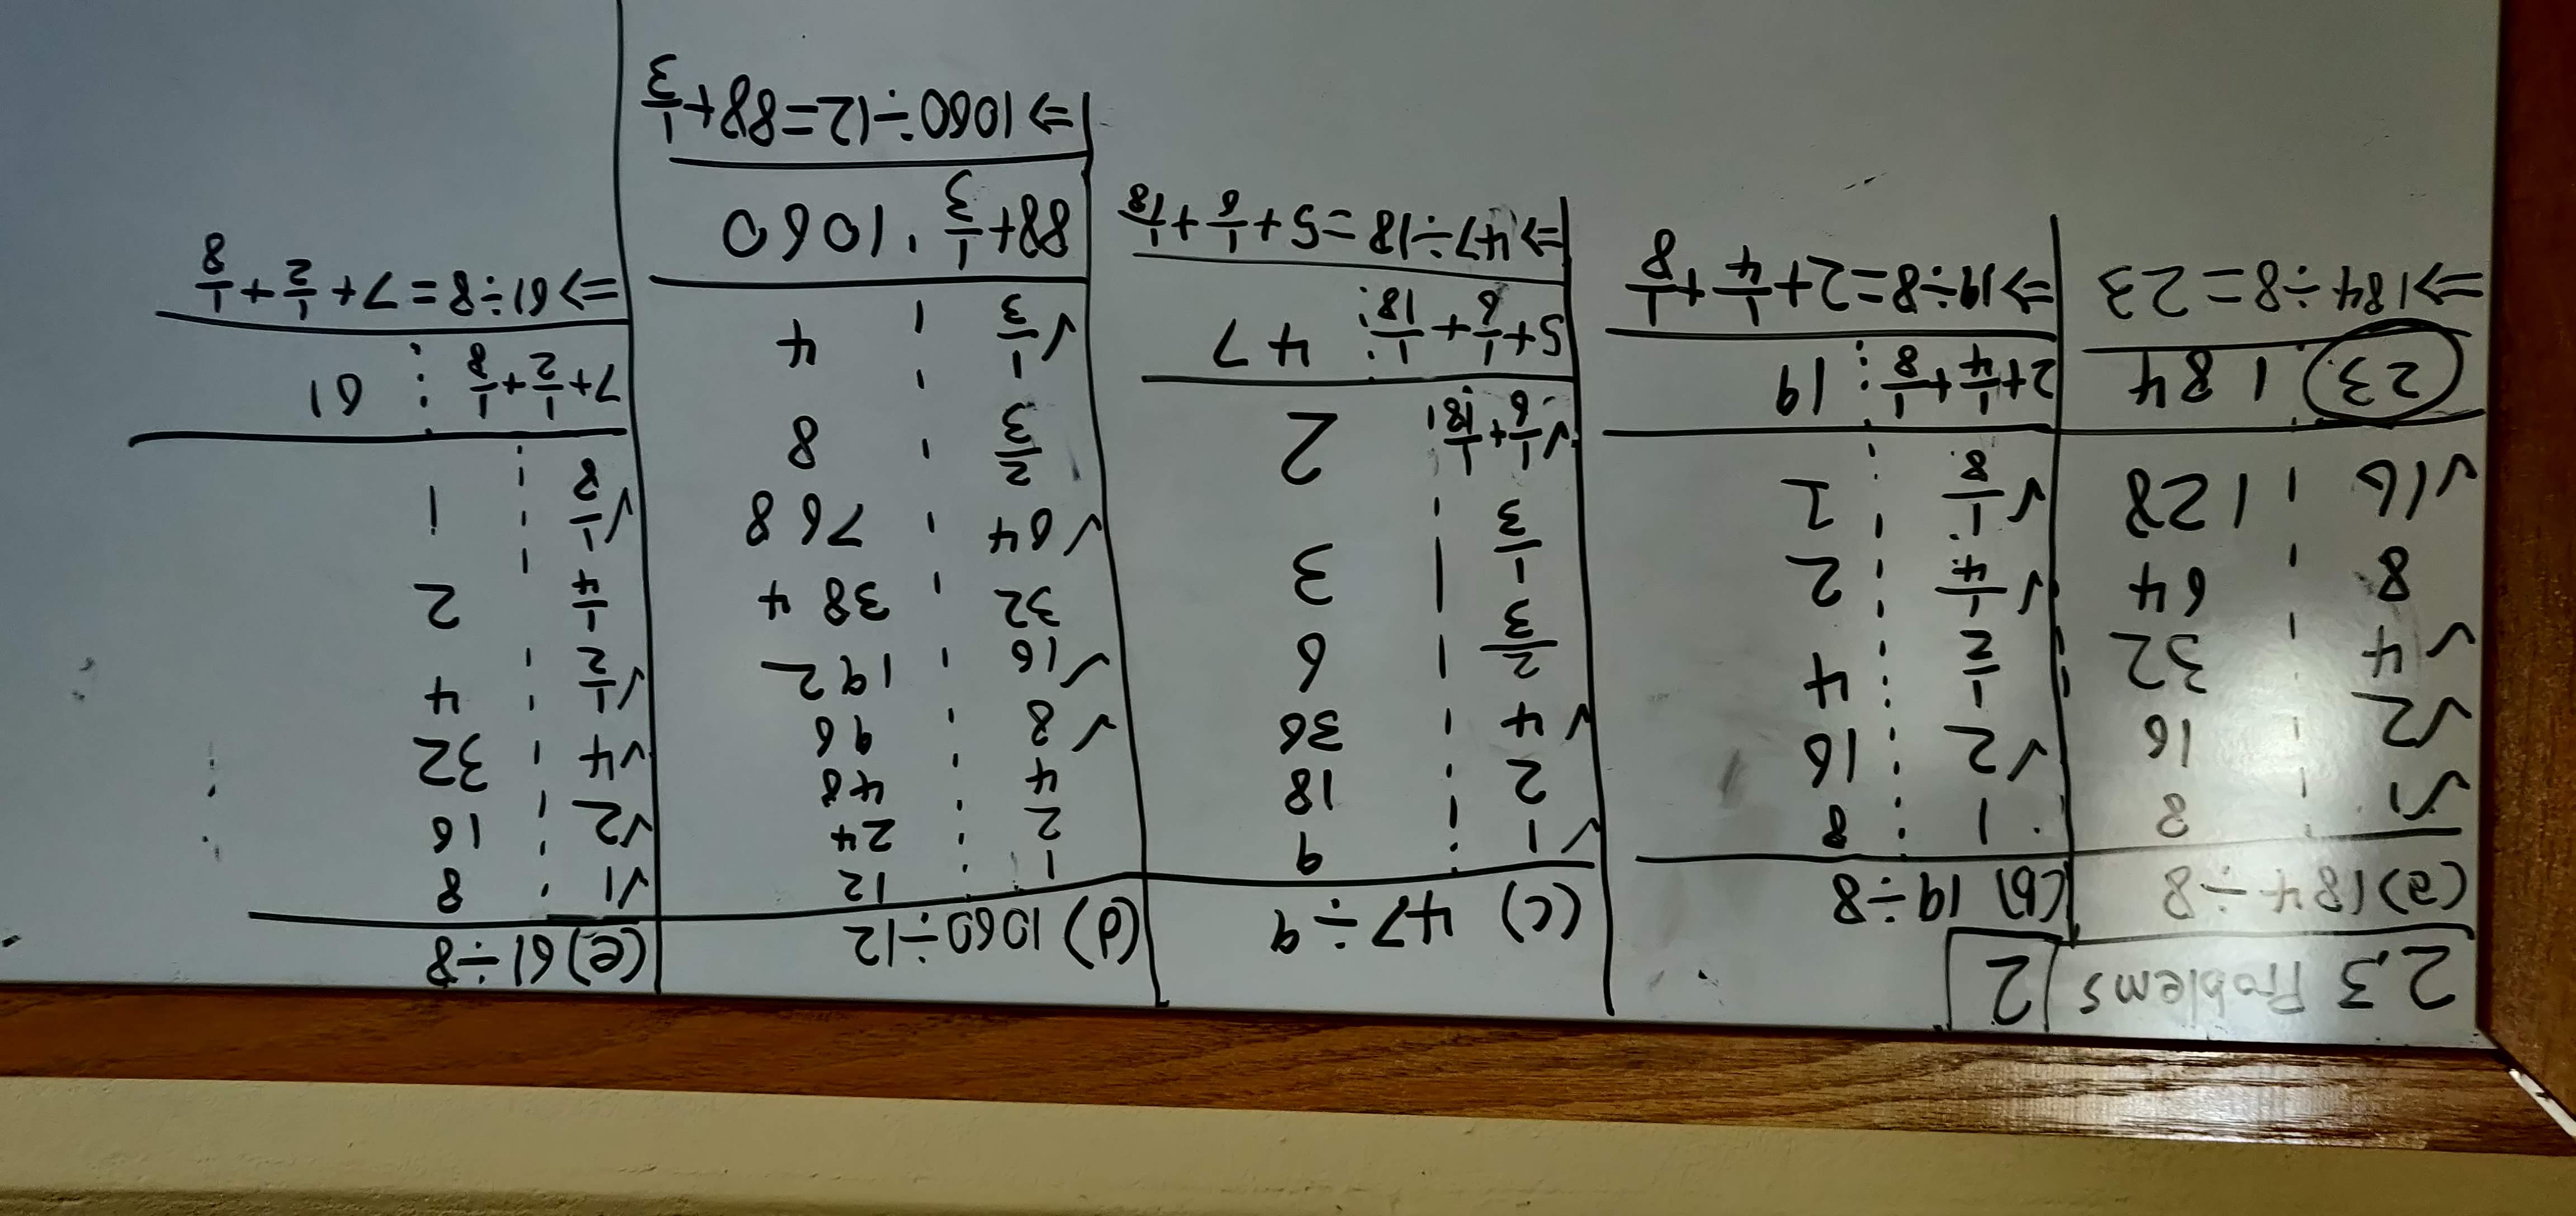 2.3 Problems 2
(a) 184 ÷ 8
✓1 ¦ 8
✓2 ¦ 16
✓4 ¦ 32
8 ¦ 64
✓16 ¦ 128
23 ¦ 184
⇒ 184 ÷ 8 = 23
(b) 19 ÷ 8
1 ¦ 8
✓2 ¦ 16
1/2 ¦ 4
✓1/4 ¦ 2
✓1/8 ¦ 1
2 + 1/4 + 1/8 ¦ 19
⇒ 19 ÷ 8 = 2 + 1/4 + 1/8
(c) 47 ÷ 9
✓1 ¦ 9
2 ¦ 18
✓4 ¦ 36
2/3 ¦ 6
1/3 ¦ 3
✓1/6 + 1/18 ¦ 2
5 + 1/6 + 1/18 ¦ 47
⇒ 47 ÷ 18 = 5 + 1/6 + 1/18
(d) 1060 ÷ 12
1 ¦ 12
2 ¦ 24
4 ¦ 48
✓8 ¦ 96
✓16 ¦ 192
32 ¦ 384
✓64 ¦ 768
2/3 ¦ 8
✓1/3 ¦ 4
88 + 1/3 ¦ 1060
⇒ 1060 ÷ 12 = 88 + 1/3
(e) 61 ÷ 8
✓1 ¦ 8
✓2 ¦ 16
✓4 ¦ 32
✓1/2 ¦ 4
1/4 ¦ 2
✓1/8 ¦ 1
7 + 1/2 + 1/8 ¦ 61
⇒ 61 ÷ 8 = 7 + 1/2 + 1/8